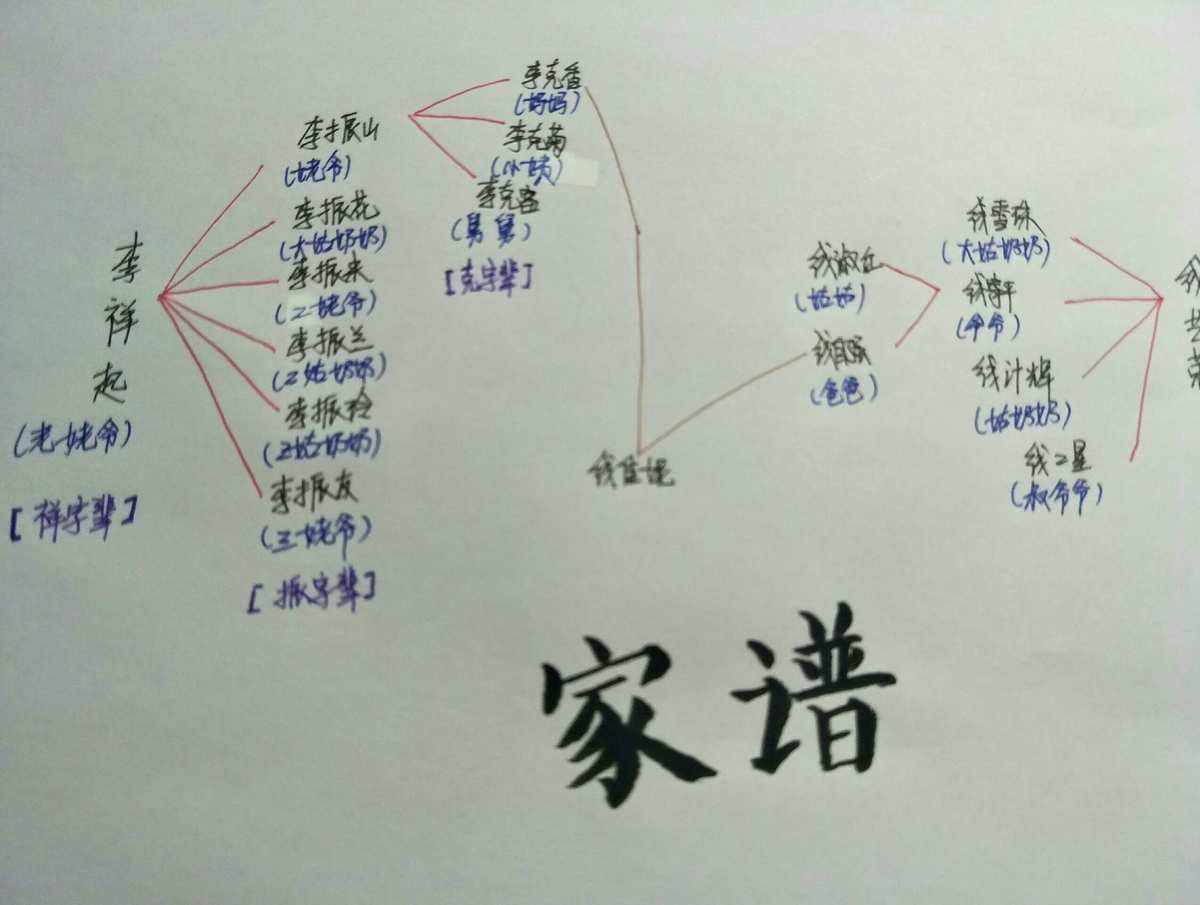 李祥起
(老姥爷)
[祥字辈]
李振山
(姥爷)
李振花
(大姑奶奶)
李振来
(二姥爷)
李振兰
(2姑奶奶)
李振玲
(2姑奶奶)
李振友
(三姥爷)
[振字辈]
李克香
(妈妈)
李克菊
(小姨)
李克富
(舅舅)
[克字辈]
钱淑丘
(姑姑)
(爸爸)
钱雪珠
(大姑奶奶)
(爷爷)
钱计辉
(姑奶奶)
钱二星
(叔爷爷)
家谱